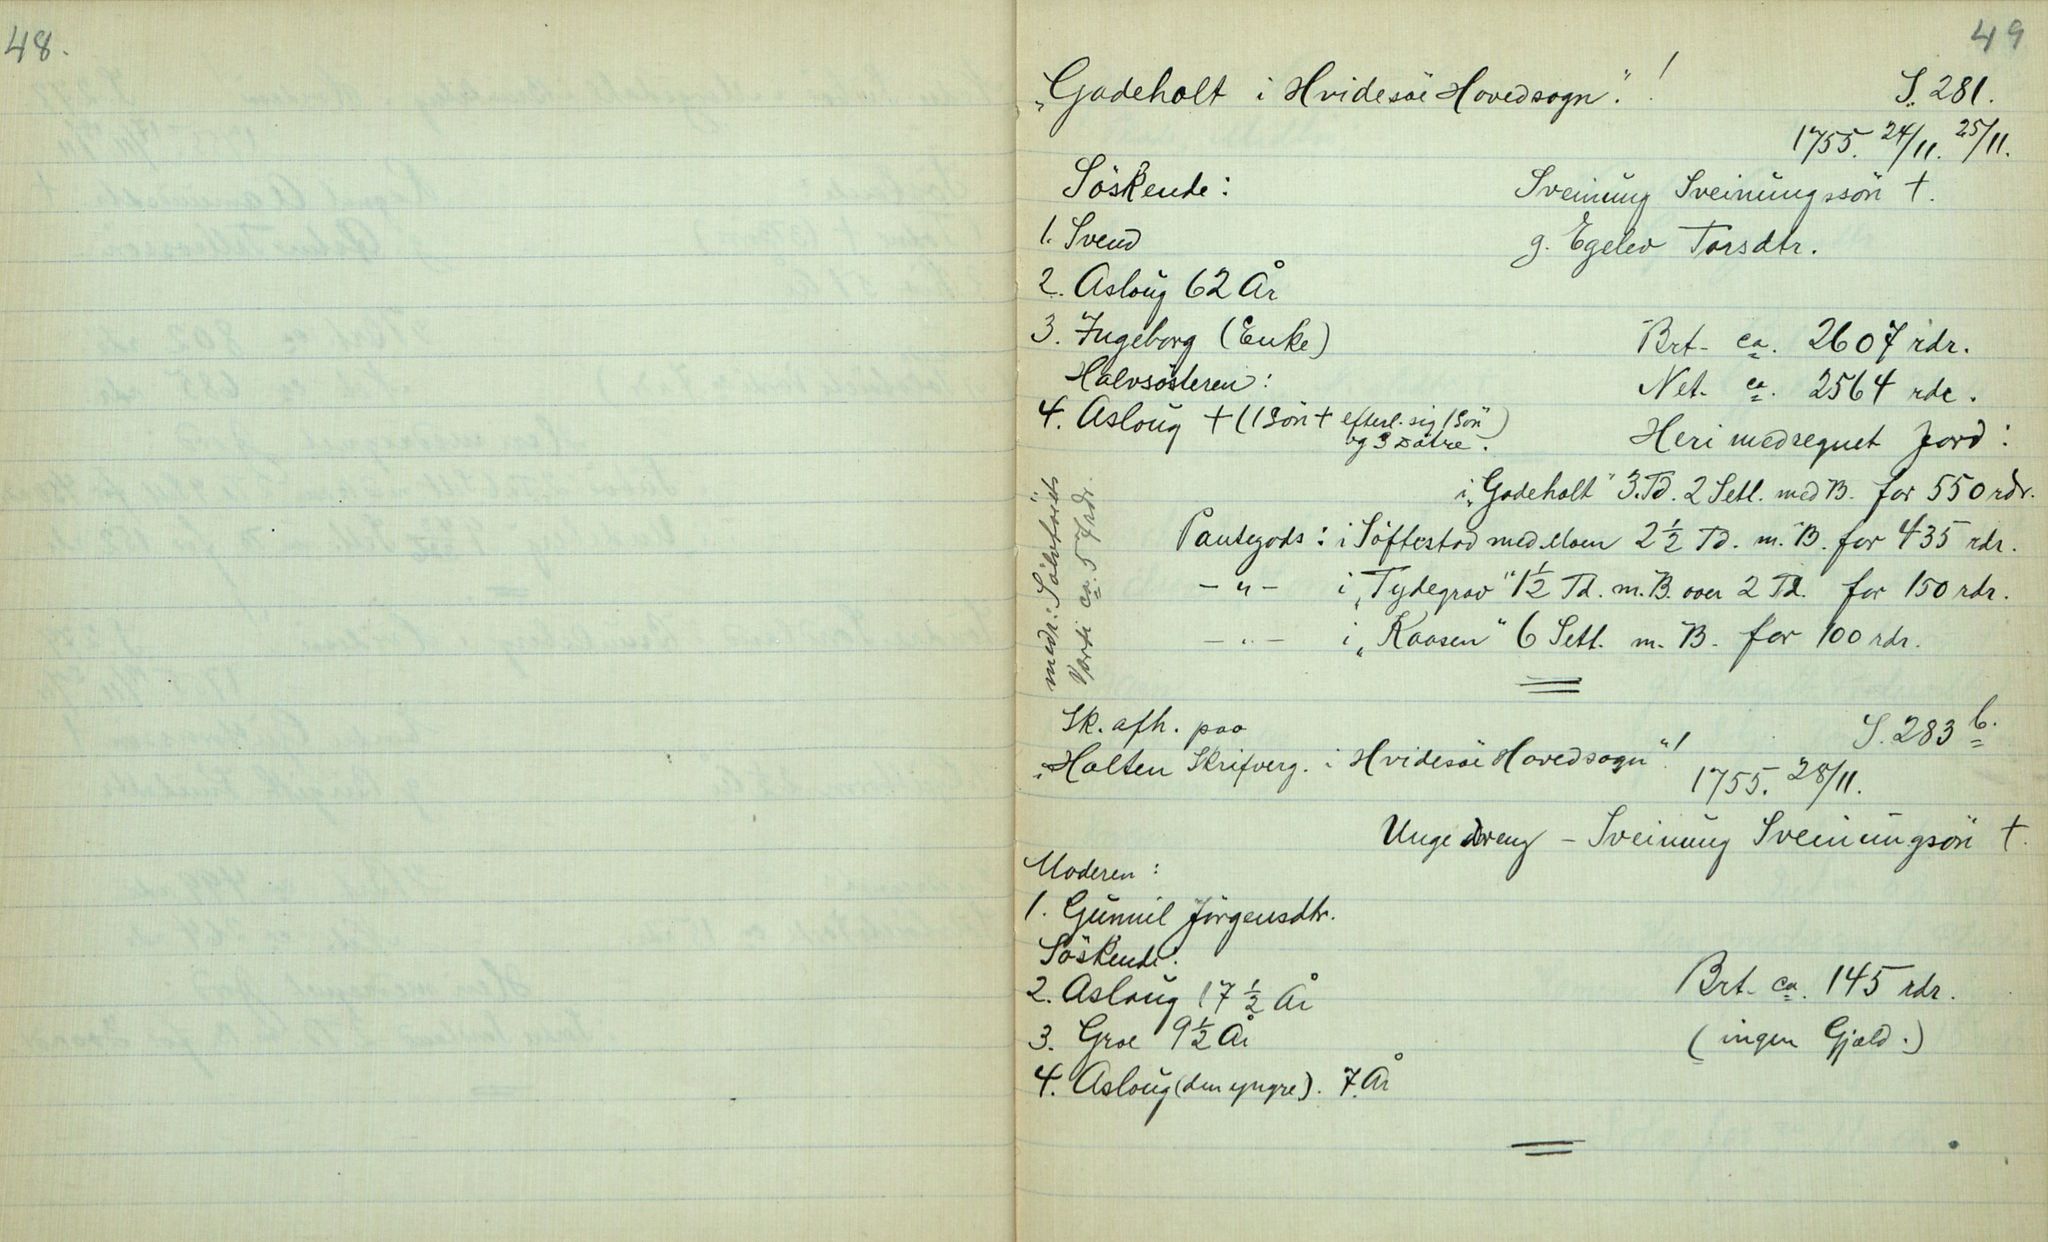 48.
49
„Gadeholt i Hvidesöe Hovedsogn". !
S. 281.
1755. 24/11. 25/11.
Söskende:
Sveinung Sveinungssön †.
1. Svend
g. Egelev Torsdtr.
2. Asloug 62 År
3. Ingeborg (Enke)
Brt. ca. 2607 rdr.
Halvsösteren:
Net. ca. 2564 rdr.
4. Asloug † (1 Sön † efterl. sig 1 Sön
og 3 Døtre.)
Heri medregnet Jord:
i „Gadeholt" 3 Td. 2 Setl. med B. for 550 rdr.
Pantegods: i Söftestad med Moen 2 1/2 Td. m. B. for 435 rdr.
- " - i „Tydegrav" 1 1/2 Td. m. B. over 2 Td. for 150 rdr.
- " - i „Kaasen" 6 Setl. m. B. for 100 rdr.
medr: Sølvtöiets
Værdi ca. 57 rdr.
Sk. afh. paa
S. 283 b.
„Holten Skrifverg. i Hvidesöe Hovedsogn" !
1755. 28/11.
Unge dreng - Sveinung Sveinungsön †.
Moderen:
1. Gunnil Jörgensdtr.
Söskende:
2. Asloug 17 1/2 År
Brt. ca. 145 rdr.
3. Groe 9 1/2 År
(ingen Gjæld.)
4. Asloug (den yngre). 7 År